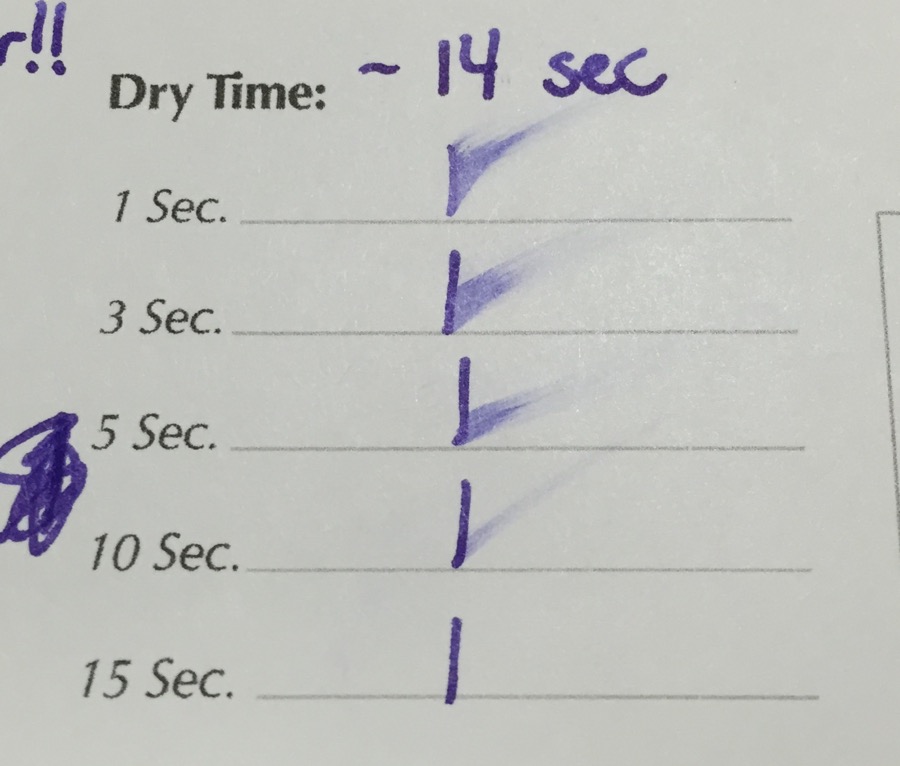 r!!
Dry Time: ~ 14 sec
1 Sec.
3 Sec.
5 Sec.
10 Sec.
15 Sec.